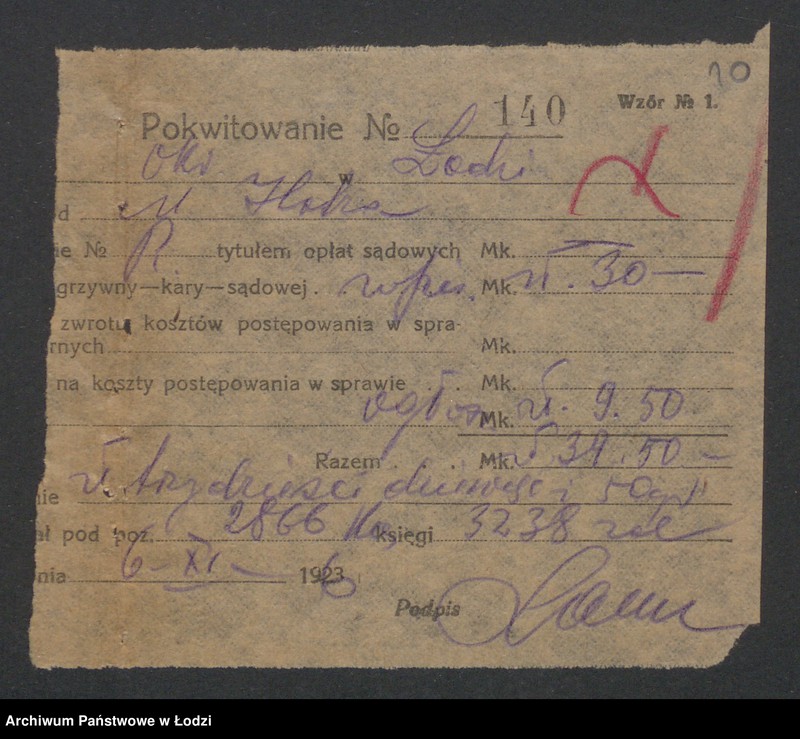 20
Wzór № 1.
Pokwitowanie № 140
w Łodzi
d M.
ie № R tytułem opłat sądowych Mk.
grzywny—kary—sądowej . wpis. Mk. zł. 30 —
zwrotu kosztów postępowania w spra-
rnych Mk.
na koszty postępowania w sprawie . . Mk.
ogłosz Mk. zł. 9.50
Razem . . . Mk. zł 39.50 —
nie zł trzydzieści dziewięć i 50 gr
ał pod poz. 2866 księgi 3238
nia 6-XI- 1923 6
Podpis
Archiwum Państwowe w Łodzi